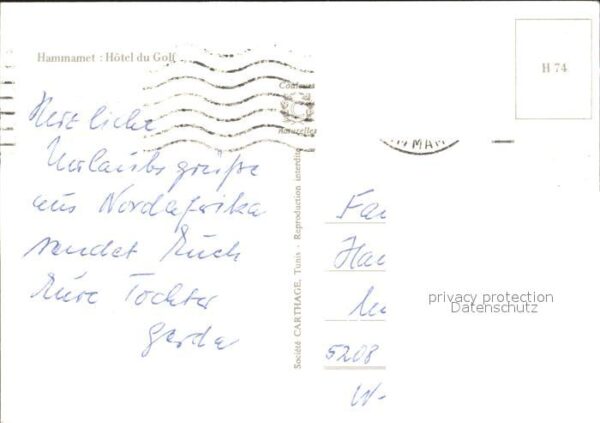 Hammamet : Hôtel du Golf
H 74
Couleurs
Naturelles
Herzliche
Urlaubsgrüße
aus Nordafrika
sendet Euch
Eure Tochter
Gerda
Société CARTHAGE, Tunis - Reproduction interdite
MAN
Fa
Ha
5208
W-
privacy protection
Datenschutz